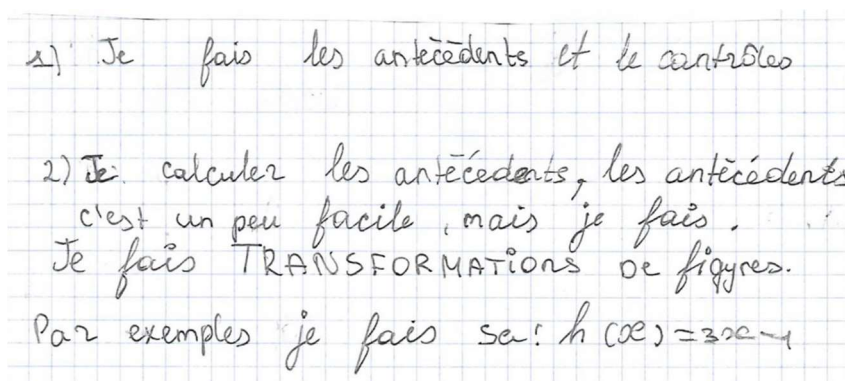 1) Je fais les antécédents et le contrôles
2) Je calculer les antécédents, les antécédents
c'est un peu facile, mais je fais.
Je fais TRANSFORMATiOnS De figyres.
Par exemples je fais sa: h(x)=3x-1